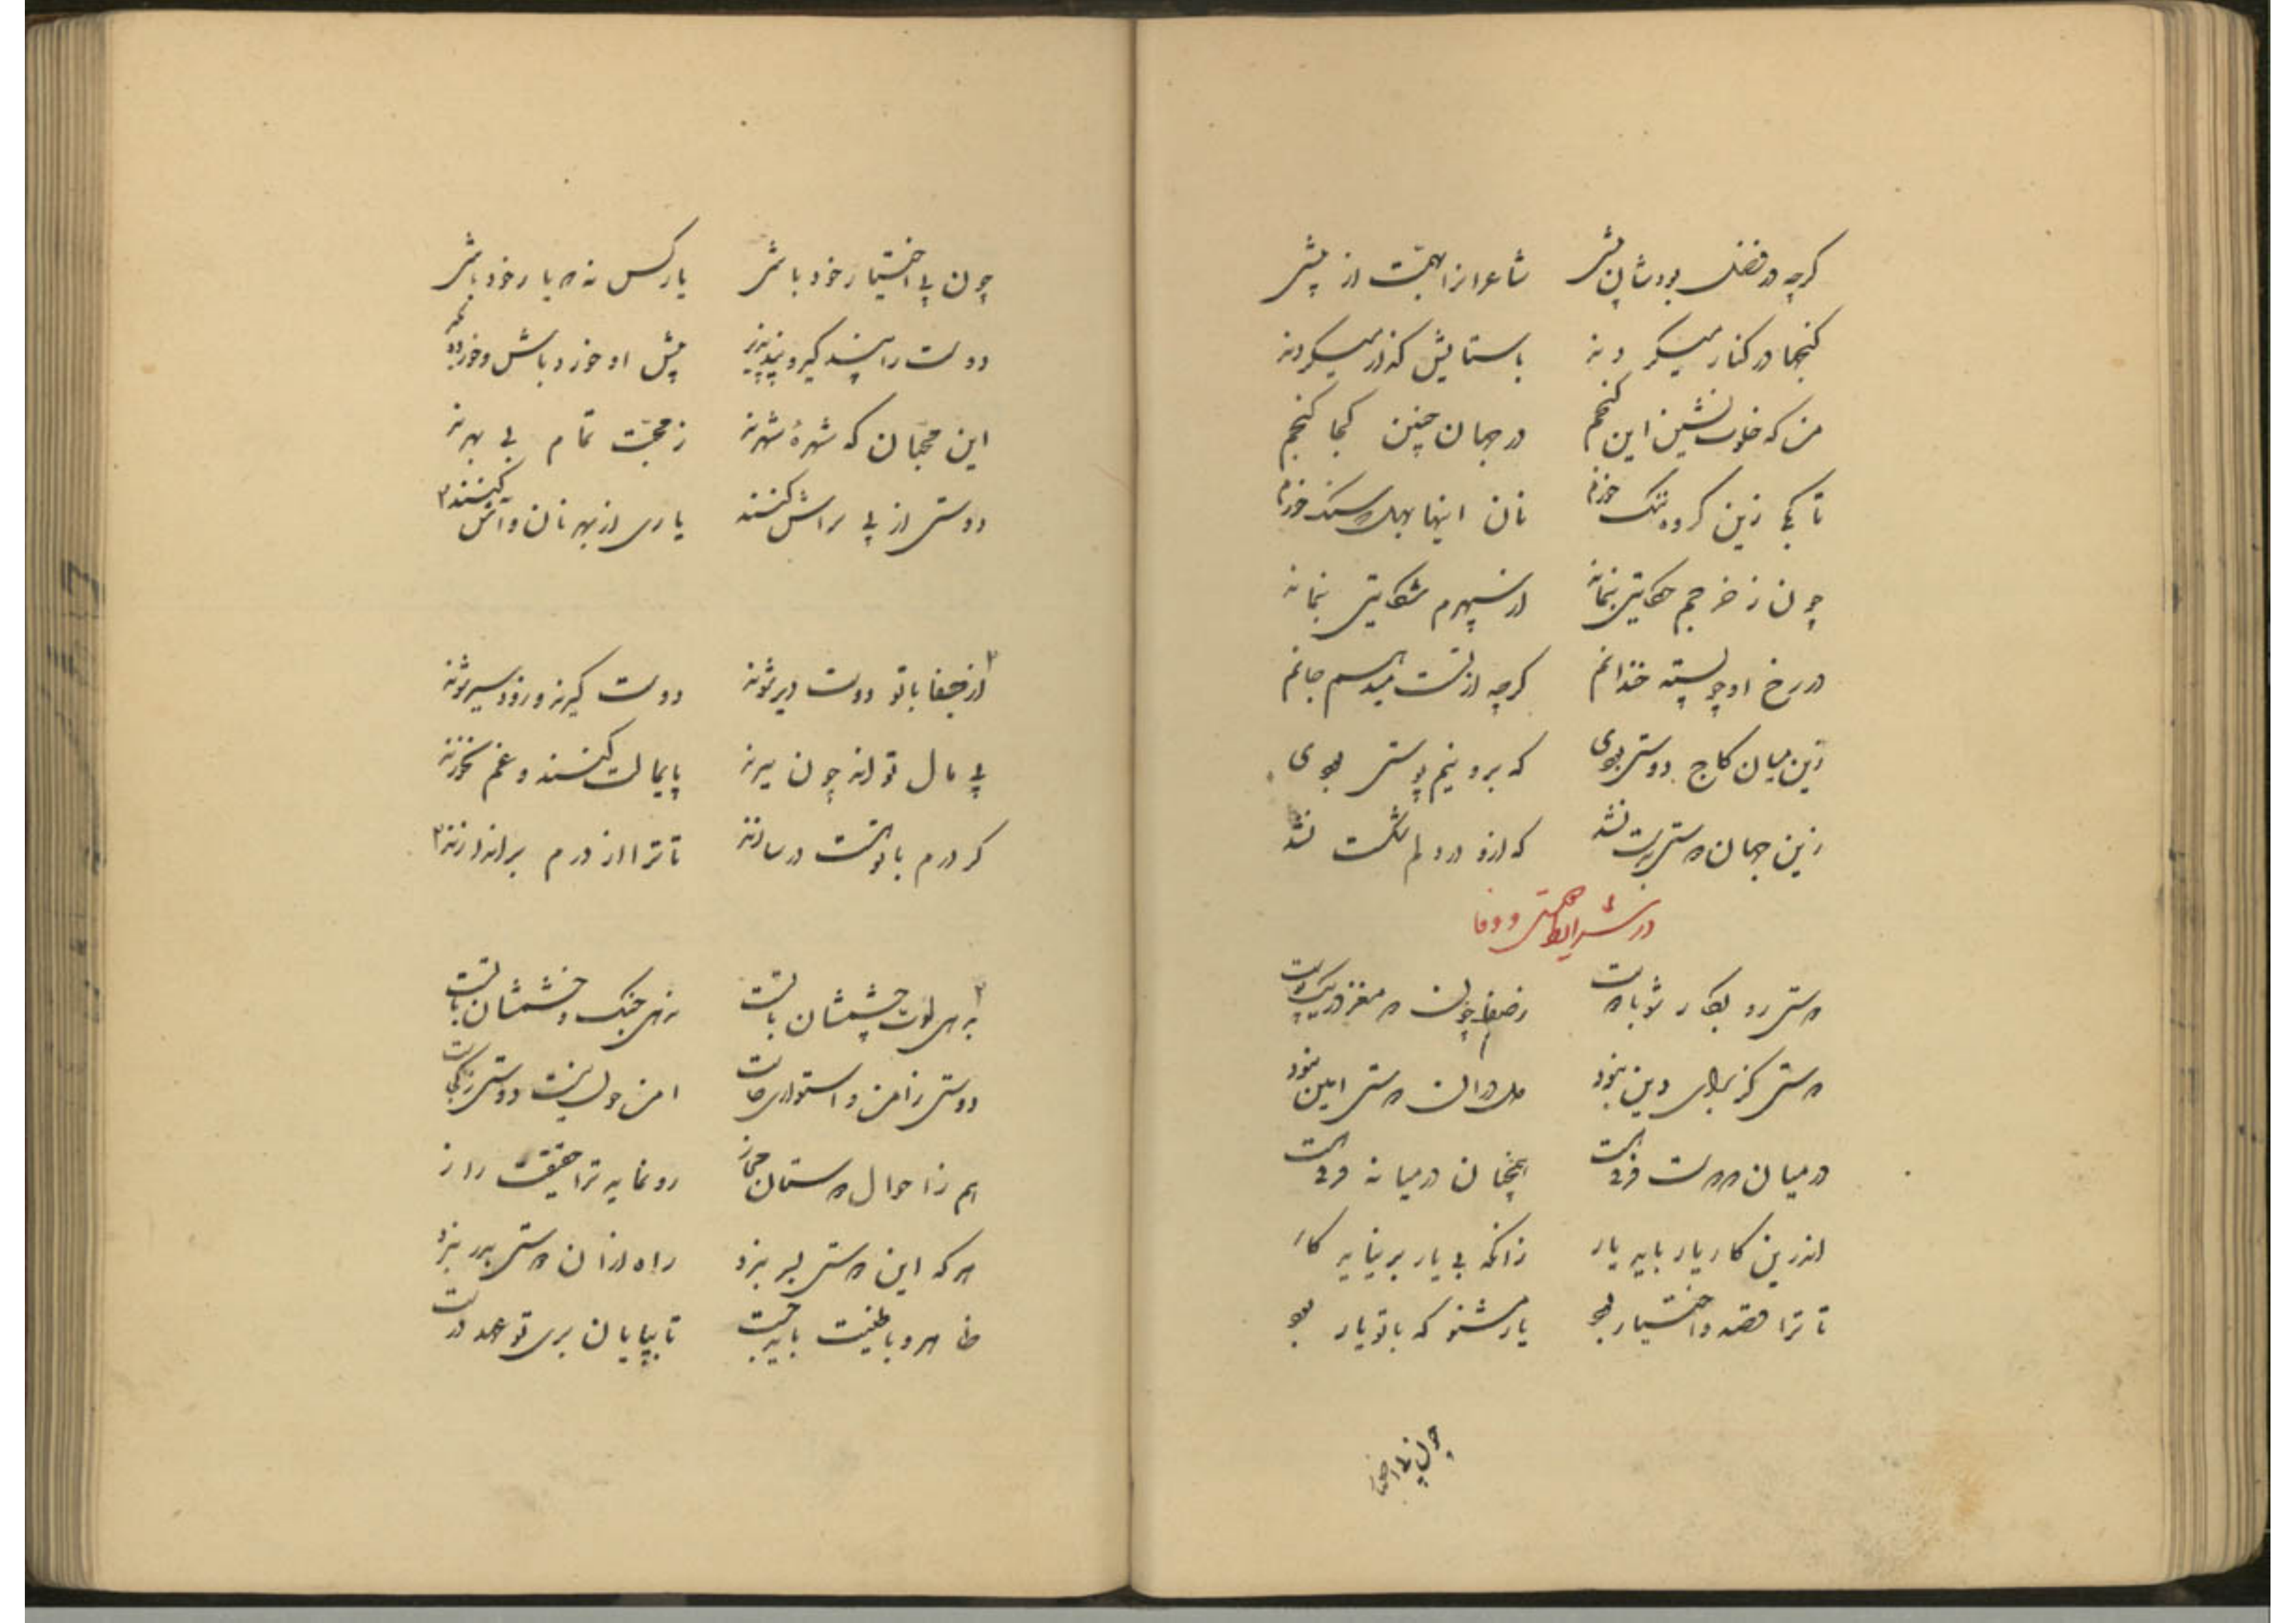 کرچه در فضل بودشان بیشی شاعرانرا همت از پیشی
کنجها در کنار میکردند با ستایش کذار میکردند
من که خلوت نشین این کنجم در جهان چنین کجا کنجم
تا کی زین کروه ننک خورم نان اینها بهل که سنک خورم
چون ز خرجم حکایتی بنماند از سپهرم شکایتی بنماند
در رخ او چو پسته خندانم کرچه از تست میرسم جانم
زین میان کاج دوستی بودی که برو نیم پوستی بودی
زین جهان دوستی بدست نشد که ازو در دلم شکست نشد
در شرایط دوستی و وفا
دوستی رو بکار شو با دوست
دوستی کز برای دین نبود دل در آن دوستی امین نبود
در میان دو دوست همچنان در میانه
اندرین کار یار باید یار زانکه بی یار بر نیاید کار
تا ترا قصد و اختیار بود یار مشنو که با تو یار بود
چون پی اختیار
چون پی اختیار خود باشی یار کس نه که یار خود باشی
دوست را پند کیر و پند پذیر پیش او خورد باش و خورده مکیر
این محبان که شهرهٔ شهرند ز محبت تمام بی بهرند
دوستی از پی تراش کنند یاری از بهر نان و آش کنند
از جفا با تو دوست دیر شوند دوست کیرند و زود سیر شوند
پی مال تواند چون میرند پایمالت کنند و غم نخورند
کر درم با توست در سازند تا ترا از درم براندازند
بهر لوت چشمشان با تست بهر جنک و خشمشان با تست
دوستی ز امن و استواری خاست امن چون نیست دوستی ز کجاست
هم ز احوال دوستان مجاز رو نماید ترا حقیقت راز
هر که این دوستی بسر نبرد راه از آن دوستی بدر نبرد
ظاهر و باطنیت باید جست تا بپایان بری تو عهد درست